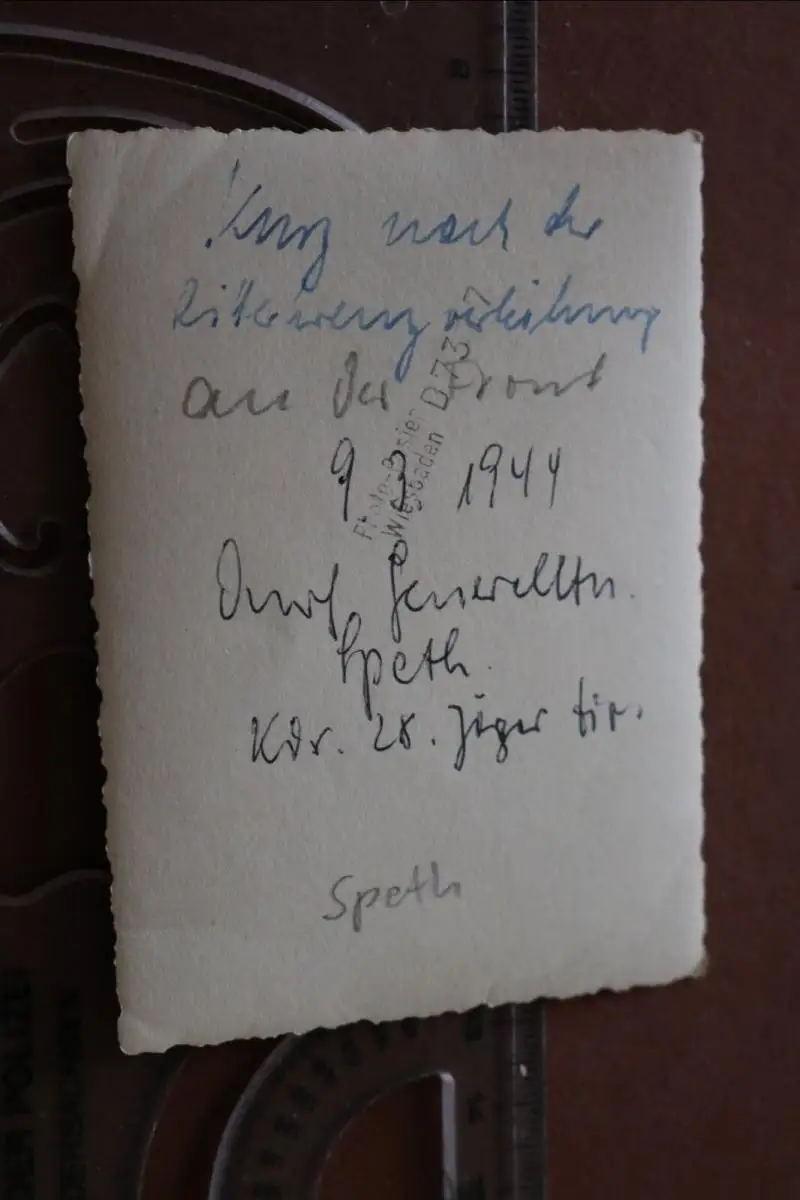 Kurz nach der
Ritterkreuzverleihung
an der Front
9 3 1944
Durch Generalltn.
Speth.
Kdr. 28. Jäger Div.
Speth
Wiesbaden
D 73
DER POLIZEI